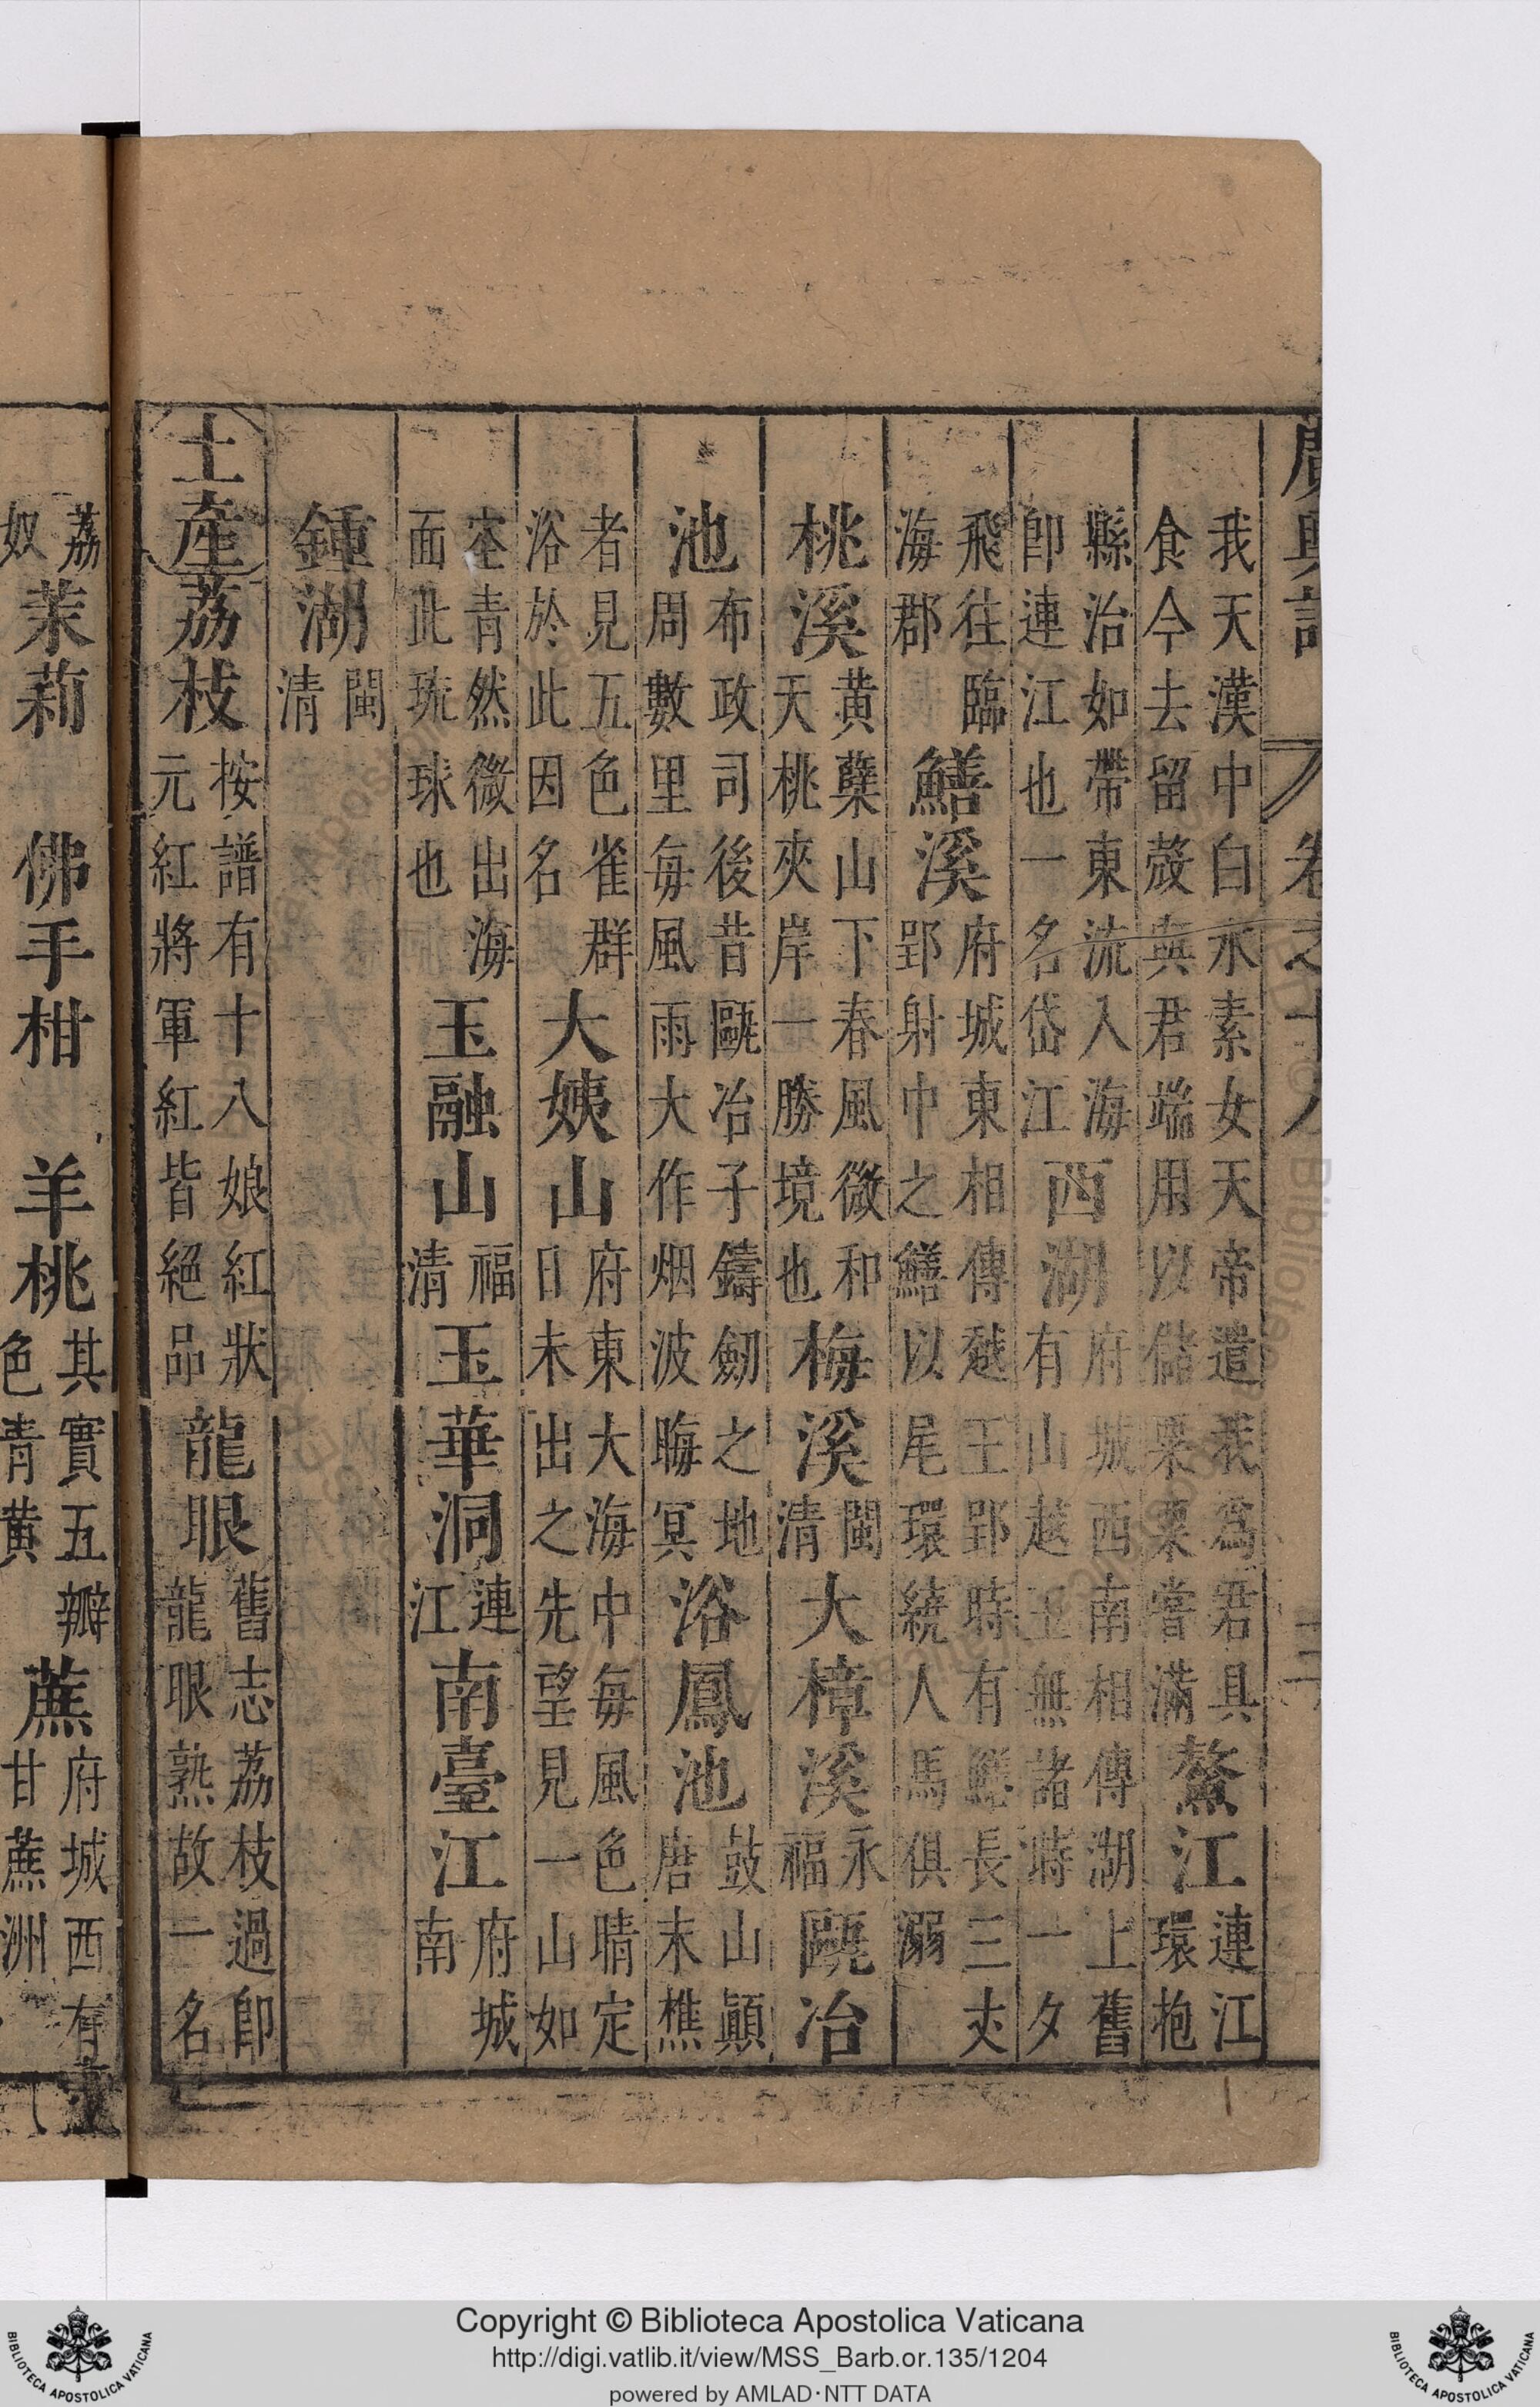 廣輿記 卷之十八 二
我天漢中白水素女天帝遣我為君具
食今去留殼與君端用以儲果粟嘗滿
鰲江
連江
環抱
縣治如帶東流入海
即連江也一名岱江
西湖
府城西南相傳湖上舊
有山越王無諸時一夕
飛往臨
海郡
鱔溪
府城東相傳越王郢時有鱔長三丈
郢射中之鱔以尾環繞人馬俱溺
桃溪
黃蘗山下春風微和
天桃夾岸一勝境也
梅溪
閩
清
大樟溪
永
福
甌冶
池
布政司後昔甌冶子鑄劒之地
周數里每風雨大作烟波晦冥
浴鳳池
鼓山顚
唐末樵
者見五色雀群
浴於此因名
大姨山
府東大海中每風色晴定
日未出之先望見一山如
空青然微出海
面此琉球也
玉融山
福
清
玉華洞
連
江
南臺江
府城
南
鍾湖
閩
清
土產
荔枝
按譜有十八娘紅狀
元紅將軍紅皆絕品
龍眼
舊志荔枝過即
龍眼熟故一名
荔
奴
茉莉 佛手柑 羊桃
其實五瓣
色青黃
蔗
府城西有
甘蔗洲
Copyright © Biblioteca Apostolica Vaticana
http://digi.vatlib.it/view/MSS_Barb.or.135/1204
powered by AMLAD·NTT DATA
BIBLIOTECA APOSTOLICA VATICANA
BIBLIOTECA APOSTOLICA VATICANA